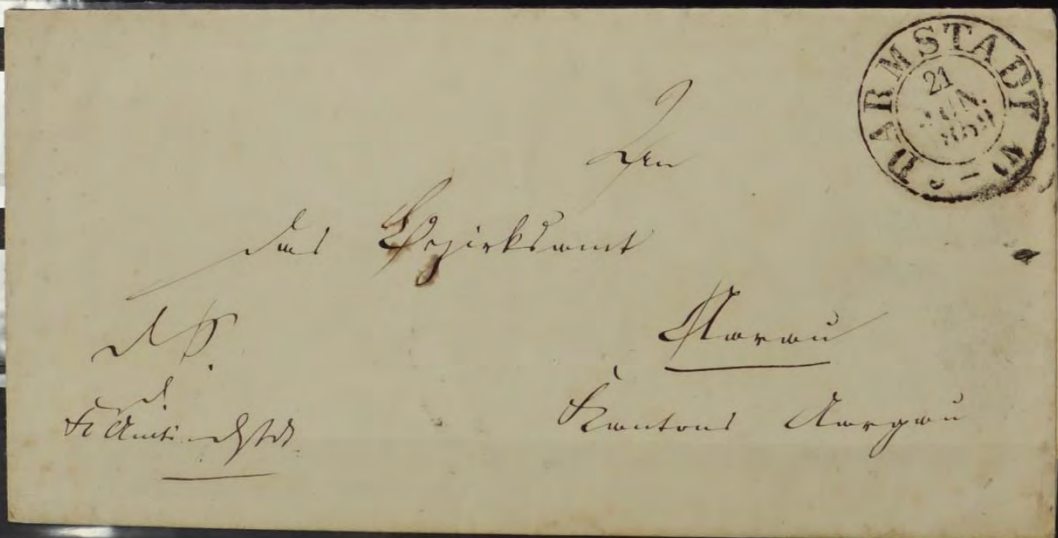 DARMSTADT
21
JUN.
1859
An
das Bezirksamt
Aarau
Kantons Aargau